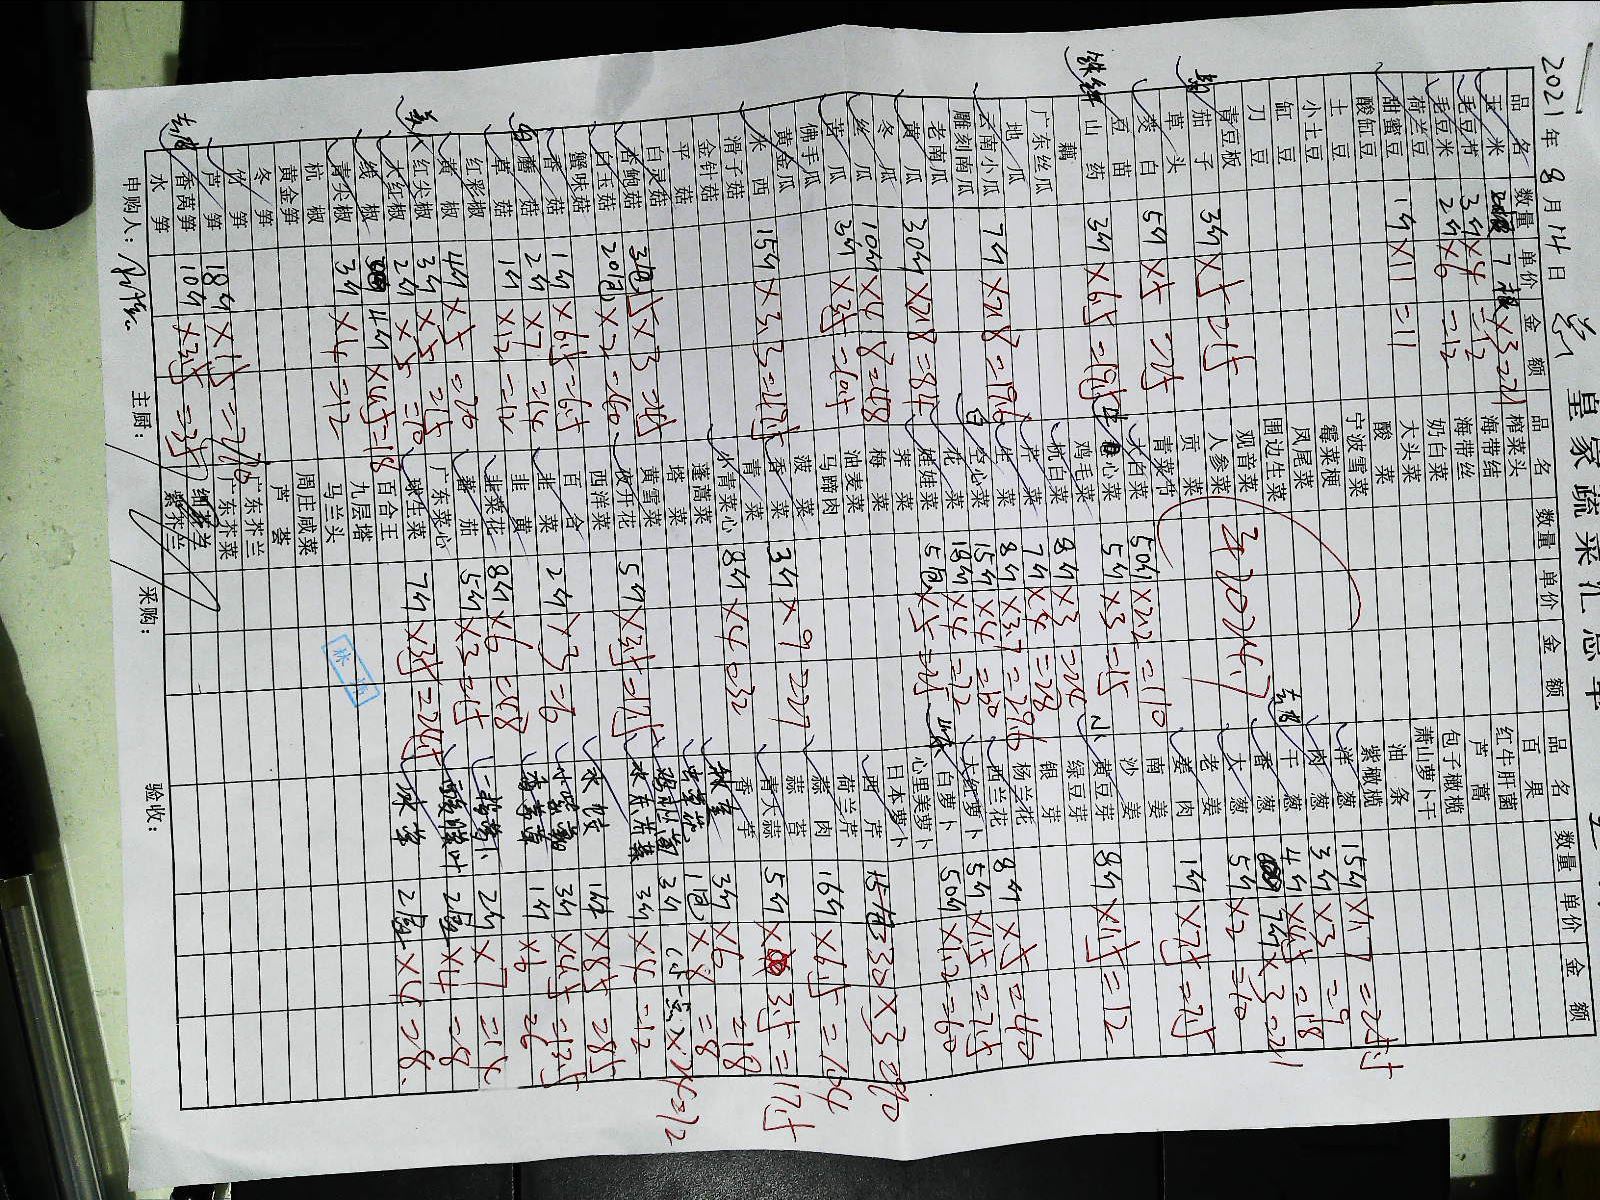 皇家蔬采汇总单
2021年8月14日
品名 数量 单价 金额 品名 数量 单价 金额 品名 数量 单价 金额
玉米 7根×3=21 榨菜头 百果
毛豆节 3斤×4=12 海带结 红牛肝菌
毛豆米 2斤×6=12 海带丝 芦蒿
荷兰豆 奶白菜 包子橄榄
甜蜜豆 1斤×11=11 大头菜 萧山萝卜干
酸缸豆 酸菜 油条
土豆 宁波雪菜 紫橄榄
小土豆 霉菜梗 洋葱 15斤×1.7=25.5
缸豆 凤尾菜 肉葱 3斤×3=9
刀豆 围边生菜 干葱 4斤×4.5=18
青豆板 观音菜 香葱 7斤×3=21
茄子 3斤×5=15 人参菜 大葱 5斤×2=10
草头 贡菜 老姜
茭白 5斤×5=25 青菜节 姜肉 1斤×7.5=7.5
豆苗 大白菜 50斤×2.2=110 南姜
山药 3斤×6.5=19.5 心菜 5斤×3=15 沙姜
藕 鸡毛菜 黄豆芽 8斤×1.5=12
广东丝瓜 杭白菜 8斤×3=24 绿豆芽
地瓜 芹菜 7斤×4=28 银芽
云南小瓜 7斤×2.8=19.6 生菜 8斤×3.7=29.6 杨兰花
雕刻南瓜 空心菜 15斤×4=60 西兰花 8斤×5=40
老南瓜 花菜 18斤×4=72 大红萝卜 5斤×1.5=7.5
黄瓜 30斤×2.8=84 娃娃菜 5包×5=25 白萝卜 50斤×1.2=60
冬瓜 荠菜 心里美萝卜
丝瓜 10斤×4.8=48 梅菜 日本萝卜
苦瓜 3斤×3.5=10.5 油麦菜 西芹 30×3=90
佛手瓜 马蹄肉 荷兰芹
黄金瓜 菠菜 蒜肉 16斤×6.5=104
西米 青菜 蒜苔
滑子菇 香菜 3斤×9=27 青大蒜 5斤×3.5=17.5
金针菇 小青菜心 8斤×4=32 香芋
平菇 蓬蒿菜 3斤×6=18
白灵菇 塔菜 1包×8=8
杏鲍菇 3包×5 黄雪菜 3斤
白玉菇 20包×3=60 枚开花 5斤×3.5=17.5 3斤×4=12
蟹味菇 西洋菜
香菇 1斤×6.5=6.5 百合 ×8.5=8.5
蘑菇 2斤×7=14 韭菜 2斤×3=6 3斤×4.5=13.5
草菇 1斤×12=12 韭黄 1斤×6=6
红彩椒 韭菜花 8斤×6=48
黄椒 4斤×5=20 蕃茄 5斤×3=15 2斤×7=14
红尖椒 3斤×5=15 广东菜心 2×4=8
大红椒 2斤×5=10 球生菜 7斤×3.5=24.5 冰草 2×4=8
线椒 4斤×4.5=18 百合王
青尖椒 3斤×4=12 九层塔
杭椒 马兰头
黄金笋 周庄咸菜
冬笋 芦荟
竹笋 广东芥兰
芦笋 18斤×15=270 广东芥菜
香莴笋 10斤×3.5=35 细芥兰
水笋 紫芥兰
3024.7
申购人： 主厨： 采购： 验收：